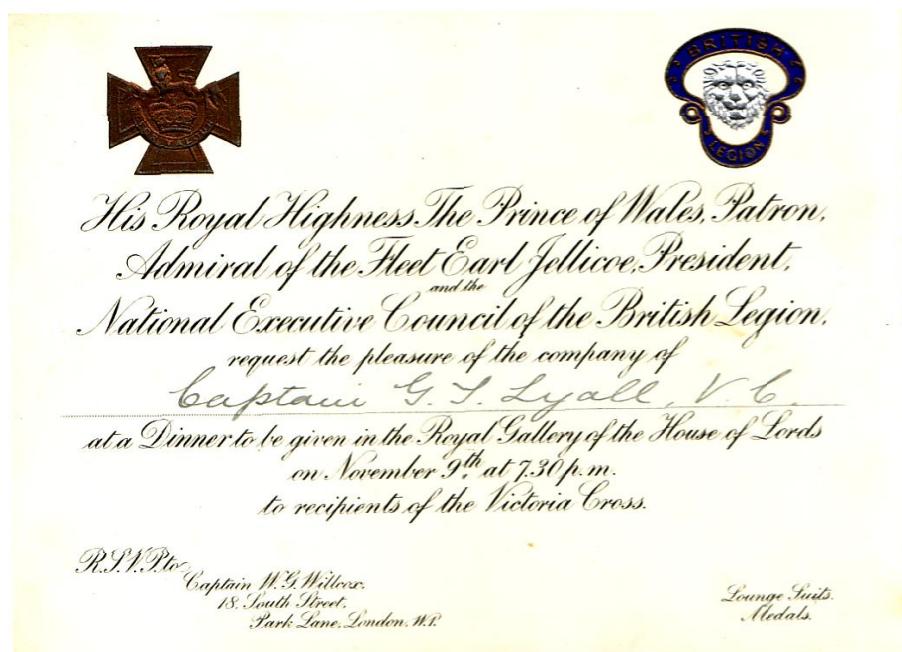 BRITISH
LEGION
His Royal Highness The Prince of Wales, Patron,
Admiral of the Fleet Earl Jellicoe, President,
and the
National Executive Council of the British Legion,
request the pleasure of the company of
Captain G. T. Lyall, V. C.
at a Dinner to be given in the Royal Gallery of the House of Lords
on November 9th at 7.30 p.m.
to recipients of the Victoria Cross.
R.S.V.P. to
Captain W.G. Willcox.
18. South Street.
Park Lane. London. W.1.
Lounge Suits.
Medals.